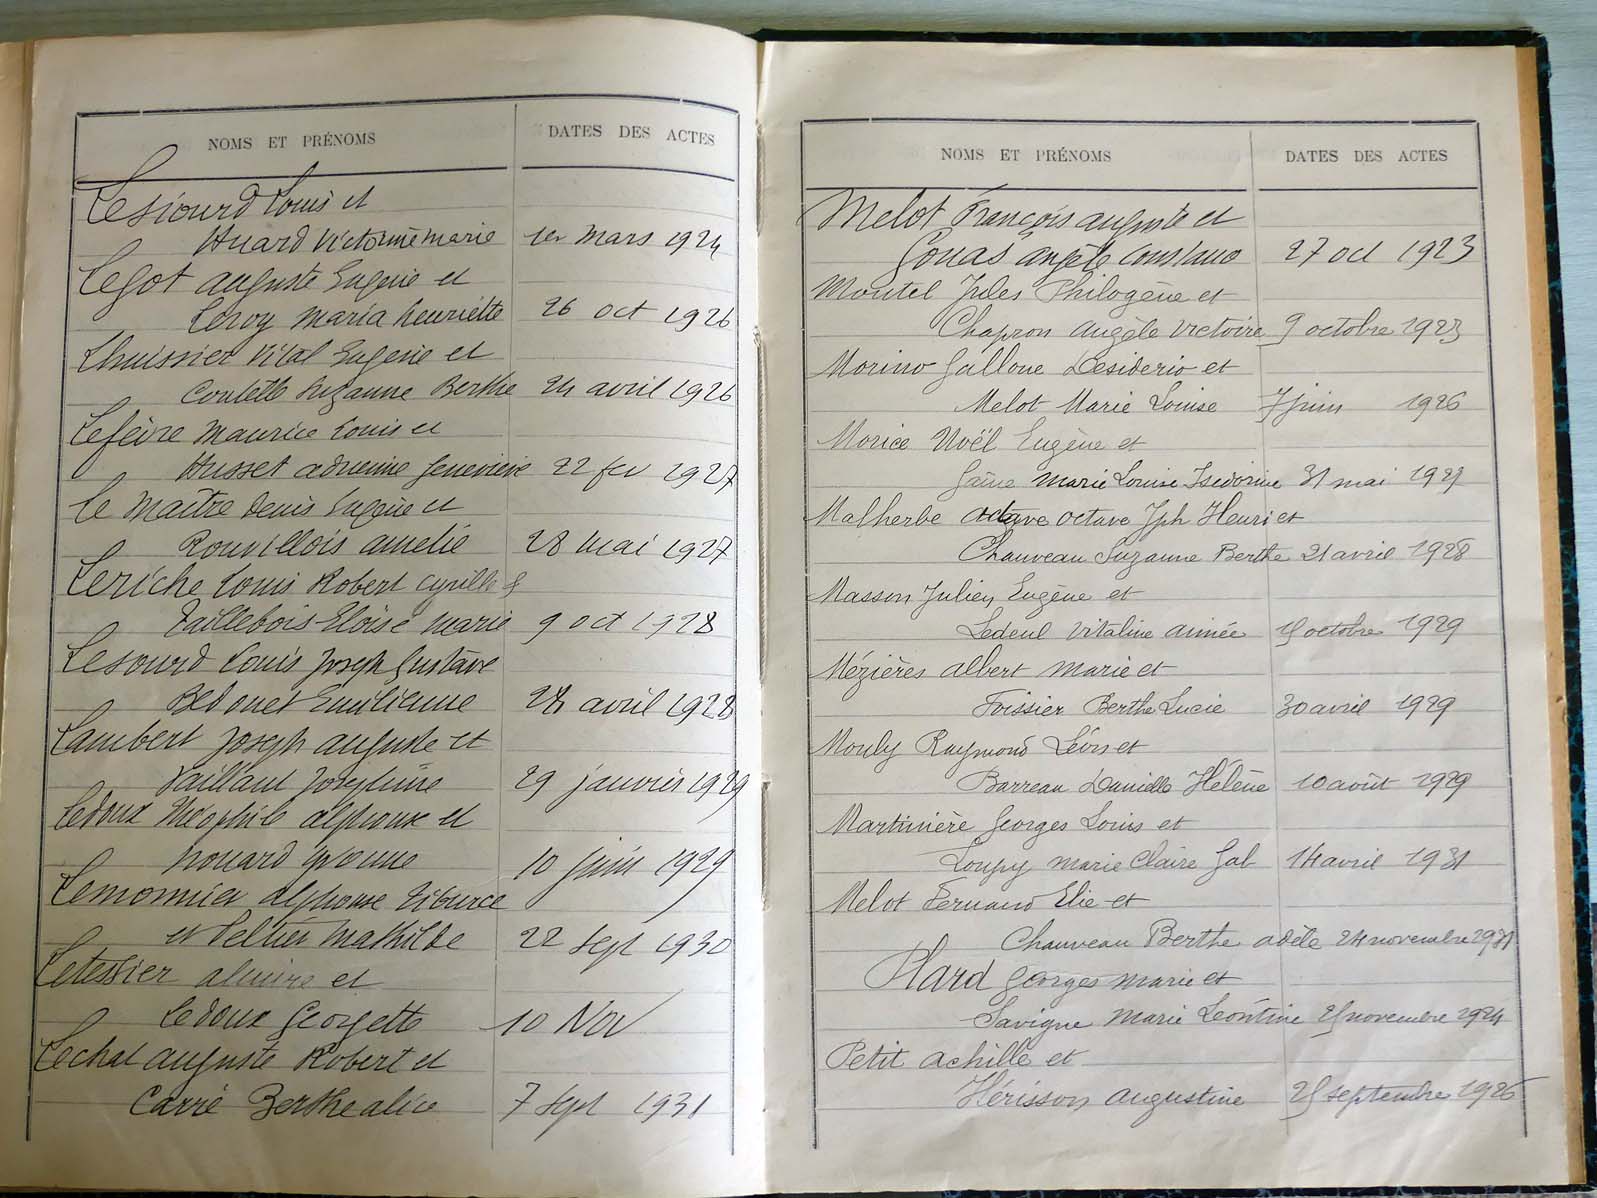 NOMS ET PRÉNOMS DATES DES ACTES
Lesiourd Louis et
Huard Victorine marie 1er mars 1924
Legot auguste Eugène et
Leroy maria henriette 26 oct 1926
Lhuissier Vital Eugène et
Suzanne Berthe 24 avril 1926
Lefèvre maurice Louis et
Husset adrienne Geneviève 22 fev 1927
Le maître Denis Eugène et
Rouvillois amélie 28 mai 1927
Leriche Louis Robert Cyrille &
Taillebois Eloïse marie 9 oct 1928
Lesourd Louis Joseph Gustave
Bedouet Emilienne 28 avril 1928
Lambert Joseph auguste et
Vaillant Joséphine 29 janvier 1929
Ledoux Théophile alphonse et
houard Yvonne 10 juin 1929
Lemonnier alphonse Tiburce
et Peltier Mathilde 22 Sept 1930
Letessier et
Ledoux Georgette 10 Nov
Lechat auguste Robert et
Carré Berthe alice 7 Sept 1931
NOMS ET PRÉNOMS DATES DES ACTES
Melot François auguste et
Gouas angèle 27 oct 1923
Moutel Jules Philogène et
Chapron Angèle Victoire 9 octobre 1923
Morino Gallone Desiderio et
Melot Marie Louise 7 juin 1926
Morice Noël Eugène et
marie Louise Isidorine 31 mai 1927
Malherbe octave Jph Henri et
Chauveau Suzanne Berthe 21 avril 1928
Masson Julien Eugène et
Ledeul Vitaline aimée octobre 1929
Mézières albert marie et
Foissier Berthe Lucie 30 avril 1929
Mouly Raymond Léon et
Barreau Danielle Hélène 10 août 1929
Martinière Georges Louis et
Loupy marie Claire Gab 14 avril 1931
Melot Fernand Elie et
Chauveau Berthe adèle 24 novembre 1931
Plard Georges marie et
Savigne Marie Léontine 25 novembre 1924
Petit achille et
Hérisson augustine 25 septembre 1926